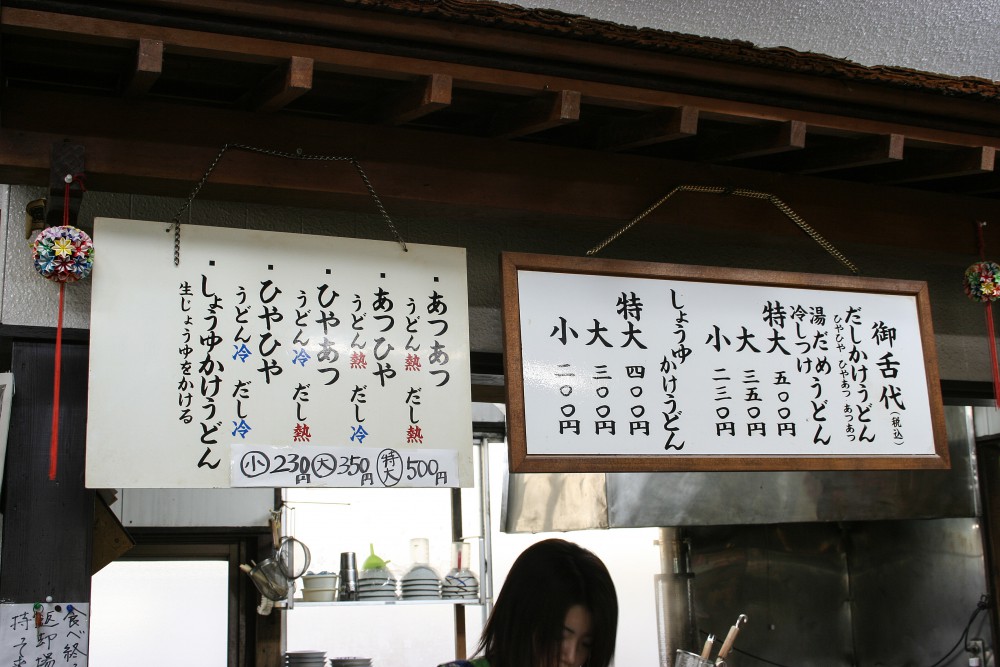 ・あつあつ
うどん熱 だし熱
・あつひや
うどん熱 だし冷
・ひやあつ
うどん冷 だし熱
・ひやひや
うどん冷 だし冷
・しょうゆかけうどん
生じょうゆをかける
小230円 大350円 特大500円
御舌代(税込)
だしかけうどん
ひやひや ひやあつ あつあつ
湯だめうどん
冷しつけ
特大 五〇〇円
大 三五〇円
小 二三〇円
しょうゆかけうどん
特大 四〇〇円
大 三〇〇円
小 二〇〇円
食べ終
返却場
持そ